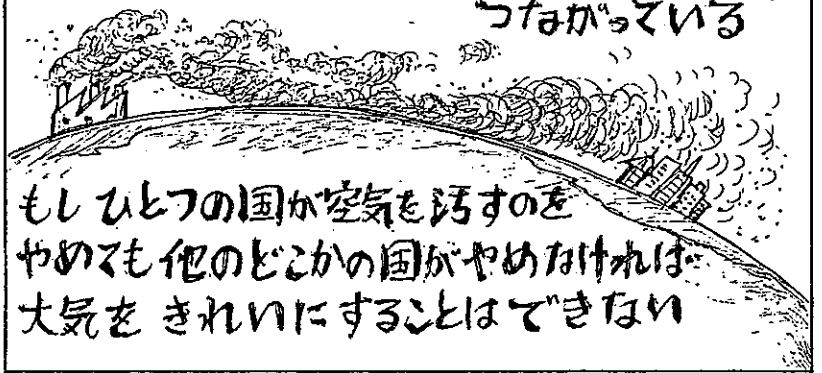 つながっている
もし ひとつの国が空気を汚すのを
やめても他のどこかの国がやめなければ
大気を きれいにすることはできない